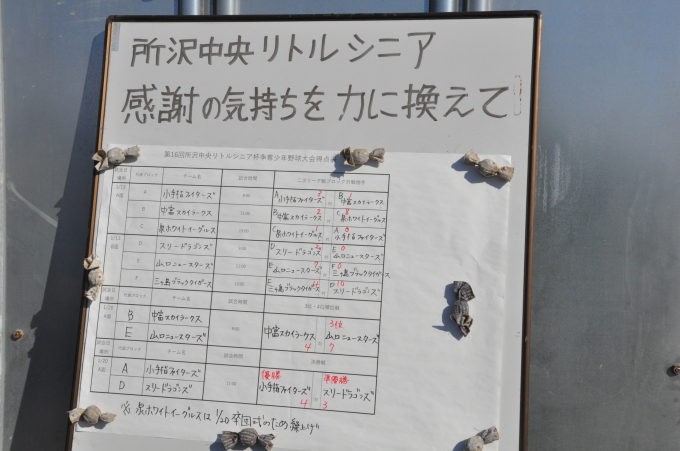 所沢中央リトルシニア
感謝の気持ちを力に換えて
第16回所沢中央リトルシニア杯争奪少年野球大会得点
試合日 場所 対戦ブロック チーム名 試合時間 二次リーグ戦ブロック対戦相手
A 小手指ファイターズ 9:00 A 小手指ファイターズ B 中富スカイラークス
B 中富スカイラークス 11:00 B 中富スカイラークス 2 C 泉ホワイトイーグルス 8
C 泉ホワイトイーグルス 13:00 C 泉ホワイトイーグルス 1 A 小手指ファイターズ
D スリードラゴンズ D スリードラゴンズ E 山口ニュースターズ 0
E 山口ニュースターズ 11:00 E 山口ニュースターズ F 三ヶ島ブラックタイガース 0
F 三ヶ島ブラックタイガース F 三ヶ島ブラックタイガース D スリードラゴンズ 10
試合日 場所 対戦ブロック チーム名 試合時間 3位・4位順位戦
B 中富スカイラークス 9:00 中富スカイラークス 4 3位 山口ニュースターズ 7
E 山口ニュースターズ
試合日 場所 対戦ブロック チーム名 試合時間 決勝戦
1/20 A 小手指ファイターズ 11:00 優勝 小手指ファイターズ 4 準優勝 スリードラゴンズ 3
D スリードラゴンズ
※泉ホワイトイーグルスは1/20 卒団式のため繰上げ